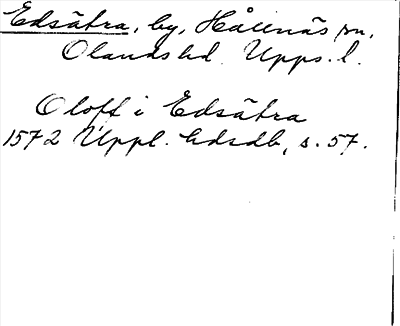 Edsätra, by, Hållnäs sn,
Olands hd. Upps. l.
Oloff i Edsätra
1572 Uppl. hdsdb, s. 57.